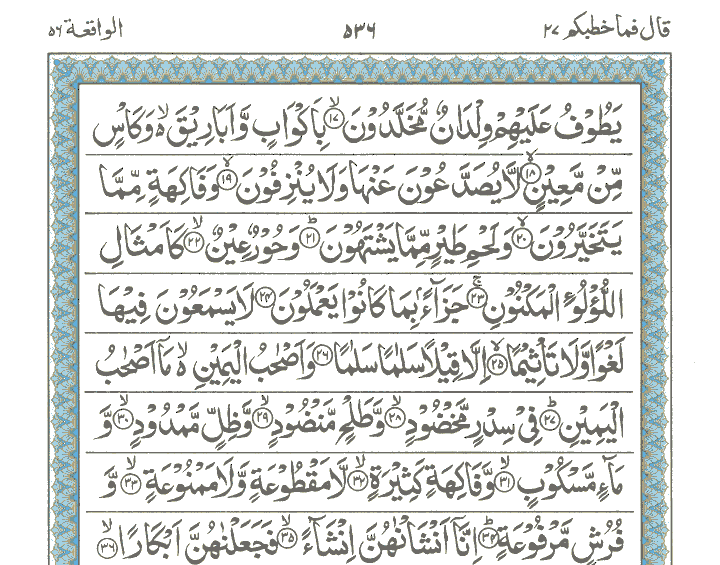 قال فما خطبكم ٢٧ ٥٣٦ الواقعة ٥٦
يَطُوْفُ عَلَيْهِمْ وِلْدَانٌ مُّخَلَّدُوْنَ ۙ﴿۱۷﴾ بِاَكْوَابٍ وَّاَبَارِيْقَ ۙ۬ وَكَاْسٍ
مِّنْ مَّعِيْنٍ ۙ﴿۱۸﴾ لَّا يُصَدَّعُوْنَ عَنْهَا وَلَا يُنْزِفُوْنَ ۙ﴿۱۹﴾ وَفَاكِهَةٍ مِّمَّا
يَتَخَيَّرُوْنَ ۙ﴿۲۰﴾ وَلَحْمِ طَيْرٍ مِّمَّا يَشْتَهُوْنَ ؕ﴿۲۱﴾ وَحُوْرٌ عِيْنٌ ۙ﴿۲۲﴾ كَاَمْثَالِ
اللُّؤْلُوَٴ الْمَكْنُوْنِ ۚ﴿۲۳﴾ جَزَآءًۢ بِمَا كَانُوْا يَعْمَلُوْنَ ﴿۲۴﴾ لَا يَسْمَعُوْنَ فِيْهَا
لَغْوًا وَّلَا تَاْثِيْمًا ۙ﴿۲۵﴾ اِلَّا قِيْلًا سَلٰمًا سَلٰمًا ﴿۲۶﴾ وَاَصْحٰبُ الْيَمِيْنِ ۙ۬ مَاۤ اَصْحٰبُ
الْيَمِيْنِ ؕ﴿۲۷﴾ فِىْ سِدْرٍ مَّخْضُوْدٍ ۙ﴿۲۸﴾ وَّطَلْحٍ مَّنْضُوْدٍ ۙ﴿۲۹﴾ وَّظِلٍّ مَّمْدُوْدٍ ۙ﴿۳۰﴾ وَّ
مَآءٍ مَّسْكُوْبٍ ۙ﴿۳۱﴾ وَّفَاكِهَةٍ كَثِيْرَةٍ ۙ﴿۳۲﴾ لَّا مَقْطُوْعَةٍ وَّلَا مَمْنُوْعَةٍ ۙ﴿۳۳﴾ وَّ
فُرُشٍ مَّرْفُوْعَةٍ ؕ﴿۳۴﴾ اِنَّاۤ اَنْشَاْنٰهُنَّ اِنْشَآءً ۙ﴿۳۵﴾ فَجَعَلْنٰهُنَّ اَبْكَارًا ۙ﴿۳۶﴾